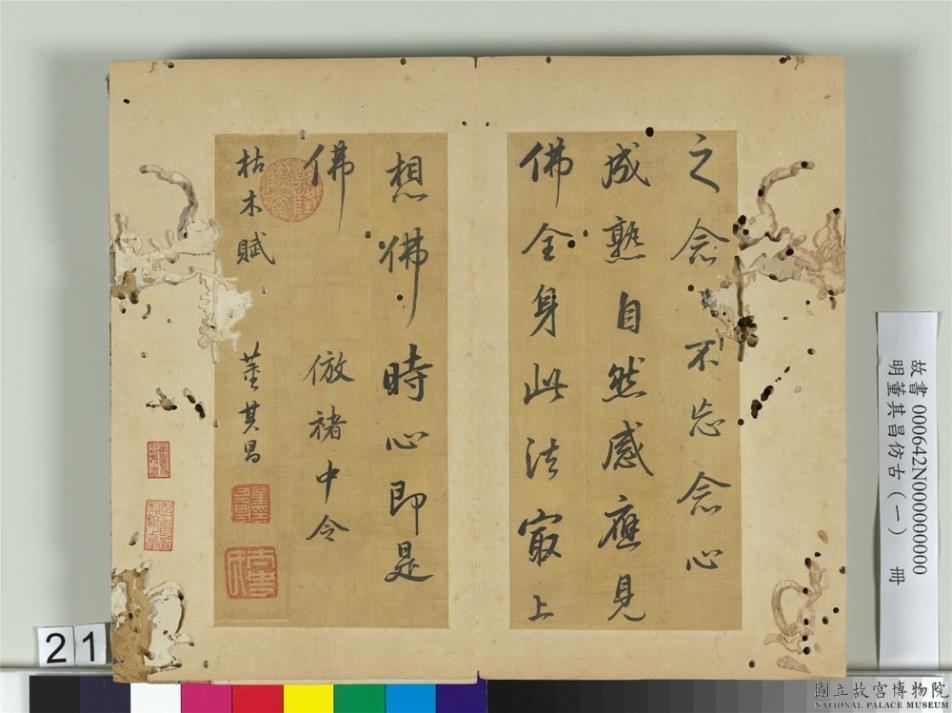 之念念不忘念心
成熟自然感應見
佛全身此法最上
想佛時心即是
佛
倣褚中令
枯木賦
董其昌
故書 000642N000000000
明董其昌仿古(一) 冊
21
國立故宮博物院
NATIONAL PALACE MUSEUM